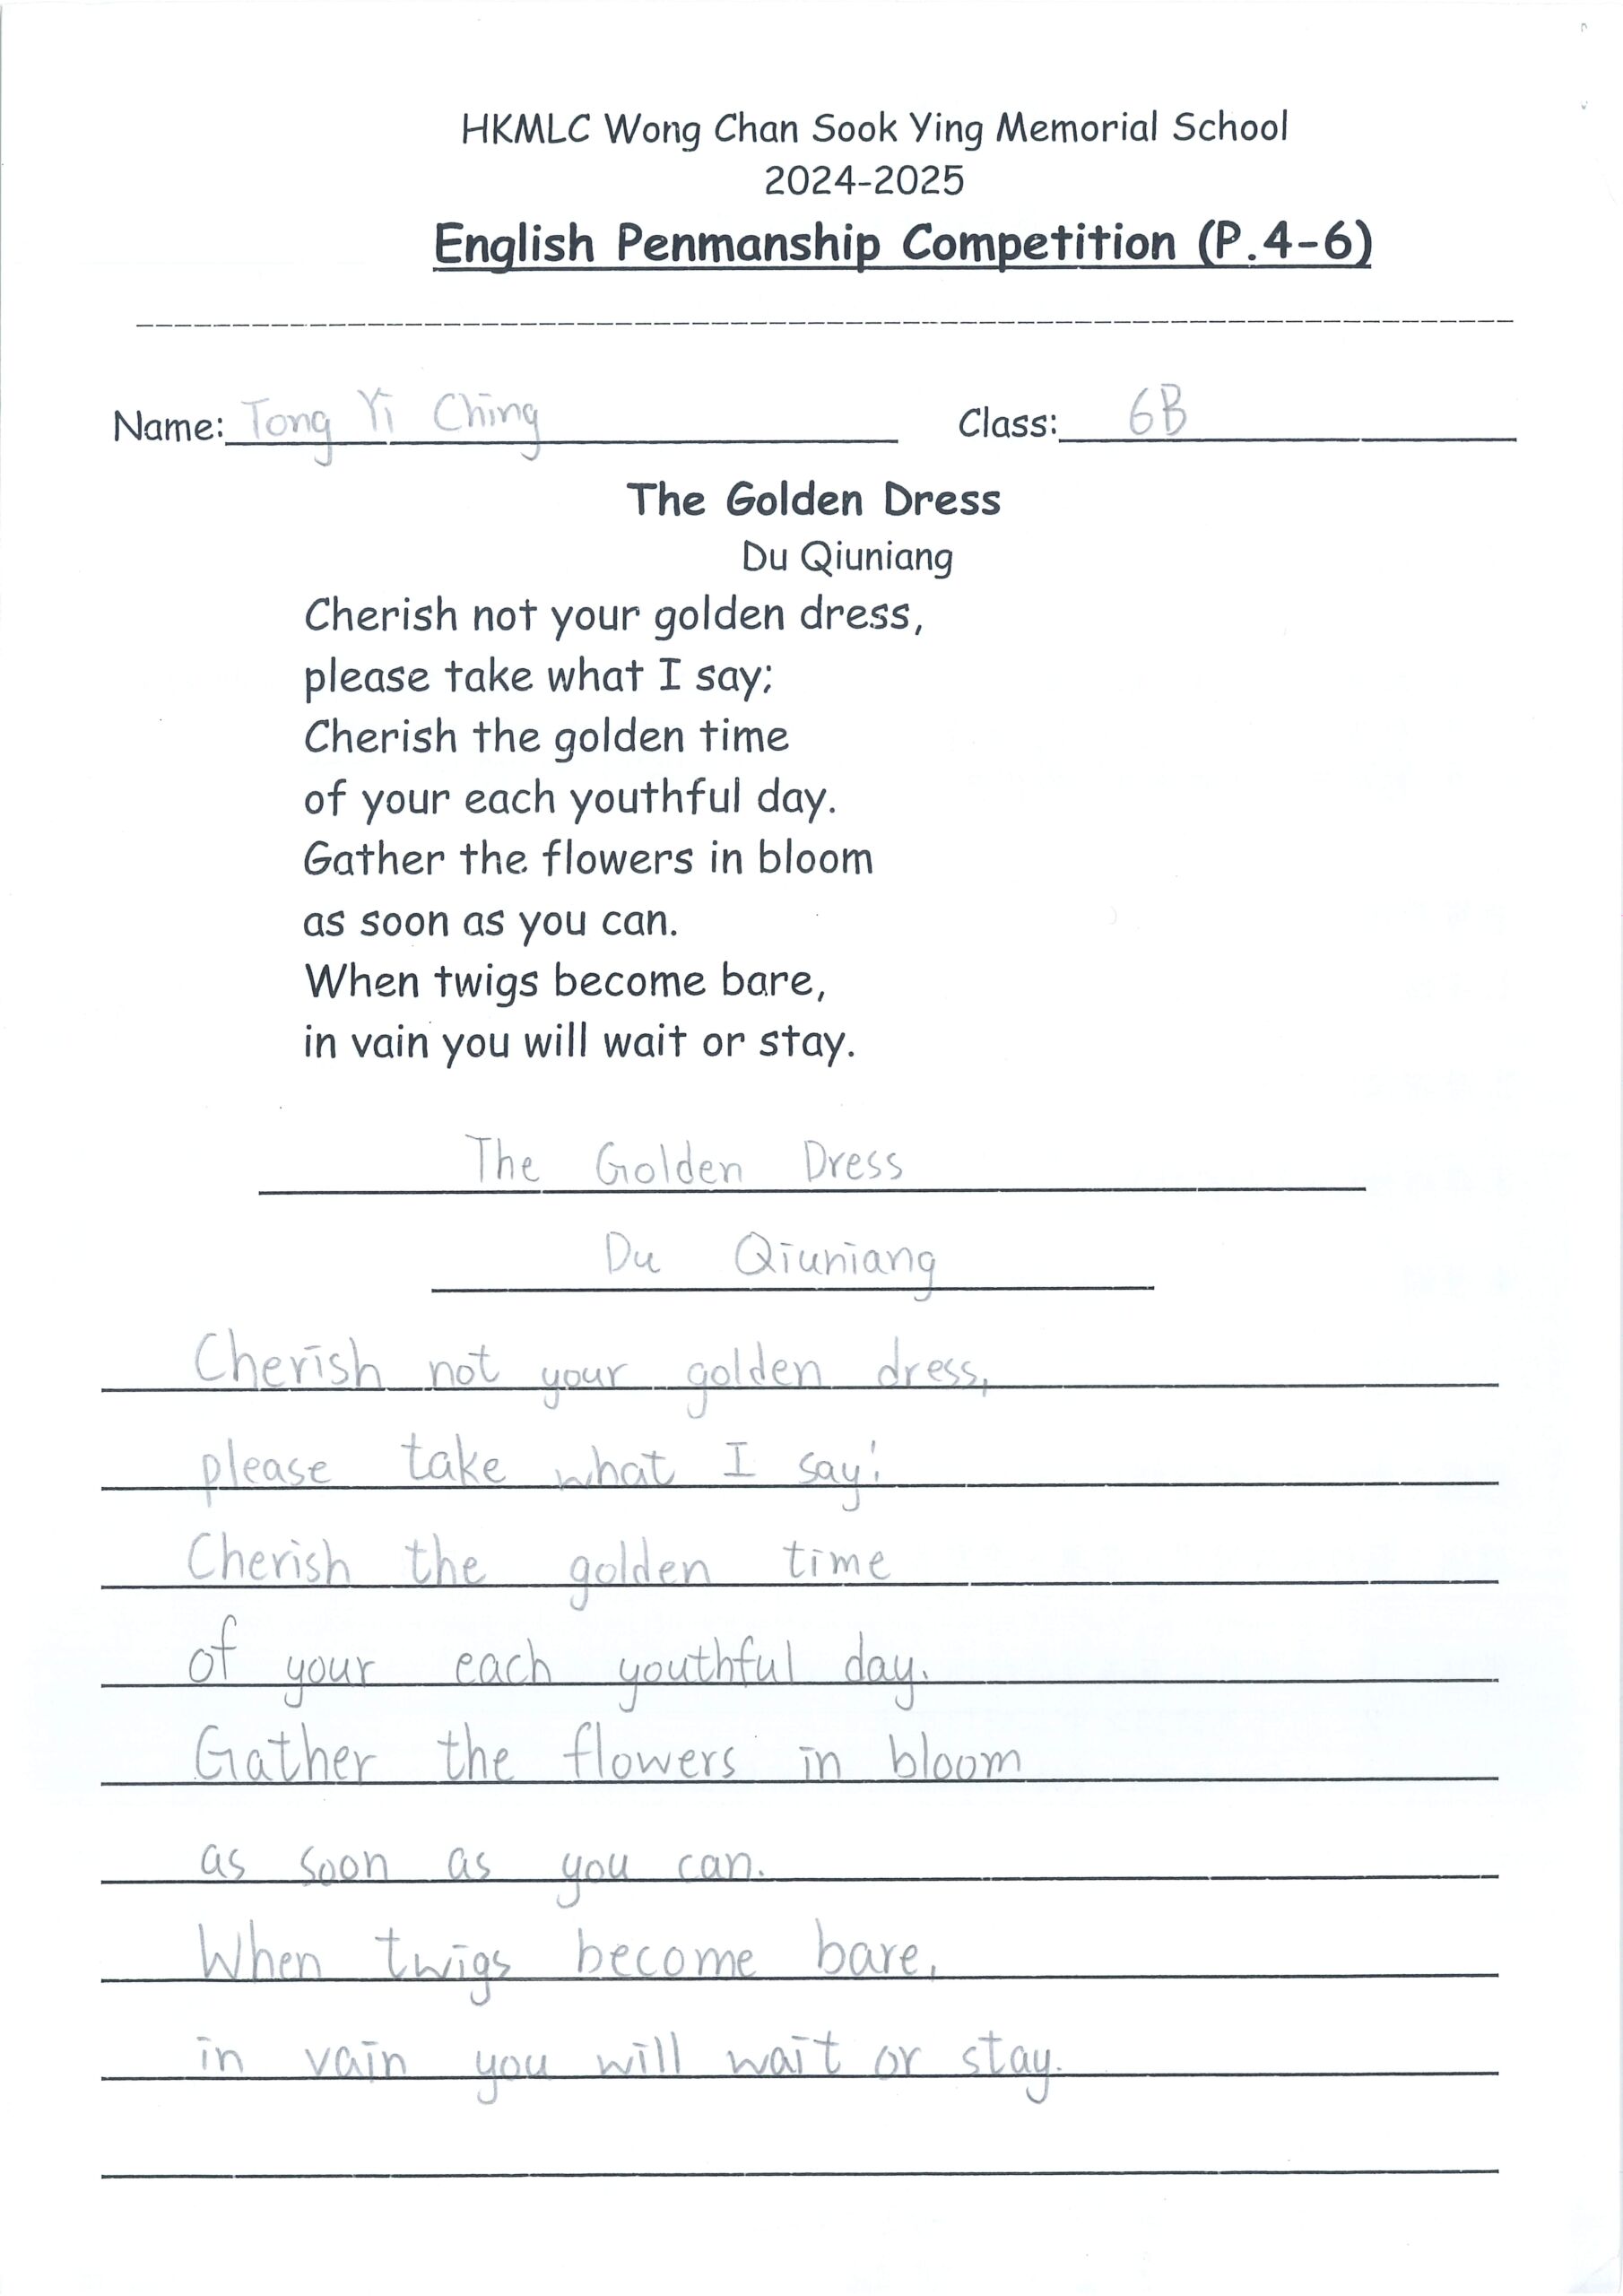 HKMLC Wong Chan Sook Ying Memorial School
2024-2025
English Penmanship Competition (P.4-6)
Name: Tong Yi Ching Class: 6B
The Golden Dress
Du Qiuniang
Cherish not your golden dress,
please take what I say;
Cherish the golden time
of your each youthful day.
Gather the flowers in bloom
as soon as you can.
When twigs become bare,
in vain you will wait or stay.
The Golden Dress
Du Qiuniang
Cherish not your golden dress,
please take what I say;
Cherish the golden time
of your each youthful day.
Gather the flowers in bloom
as soon as you can.
When twigs become bare,
in vain you will wait or stay.